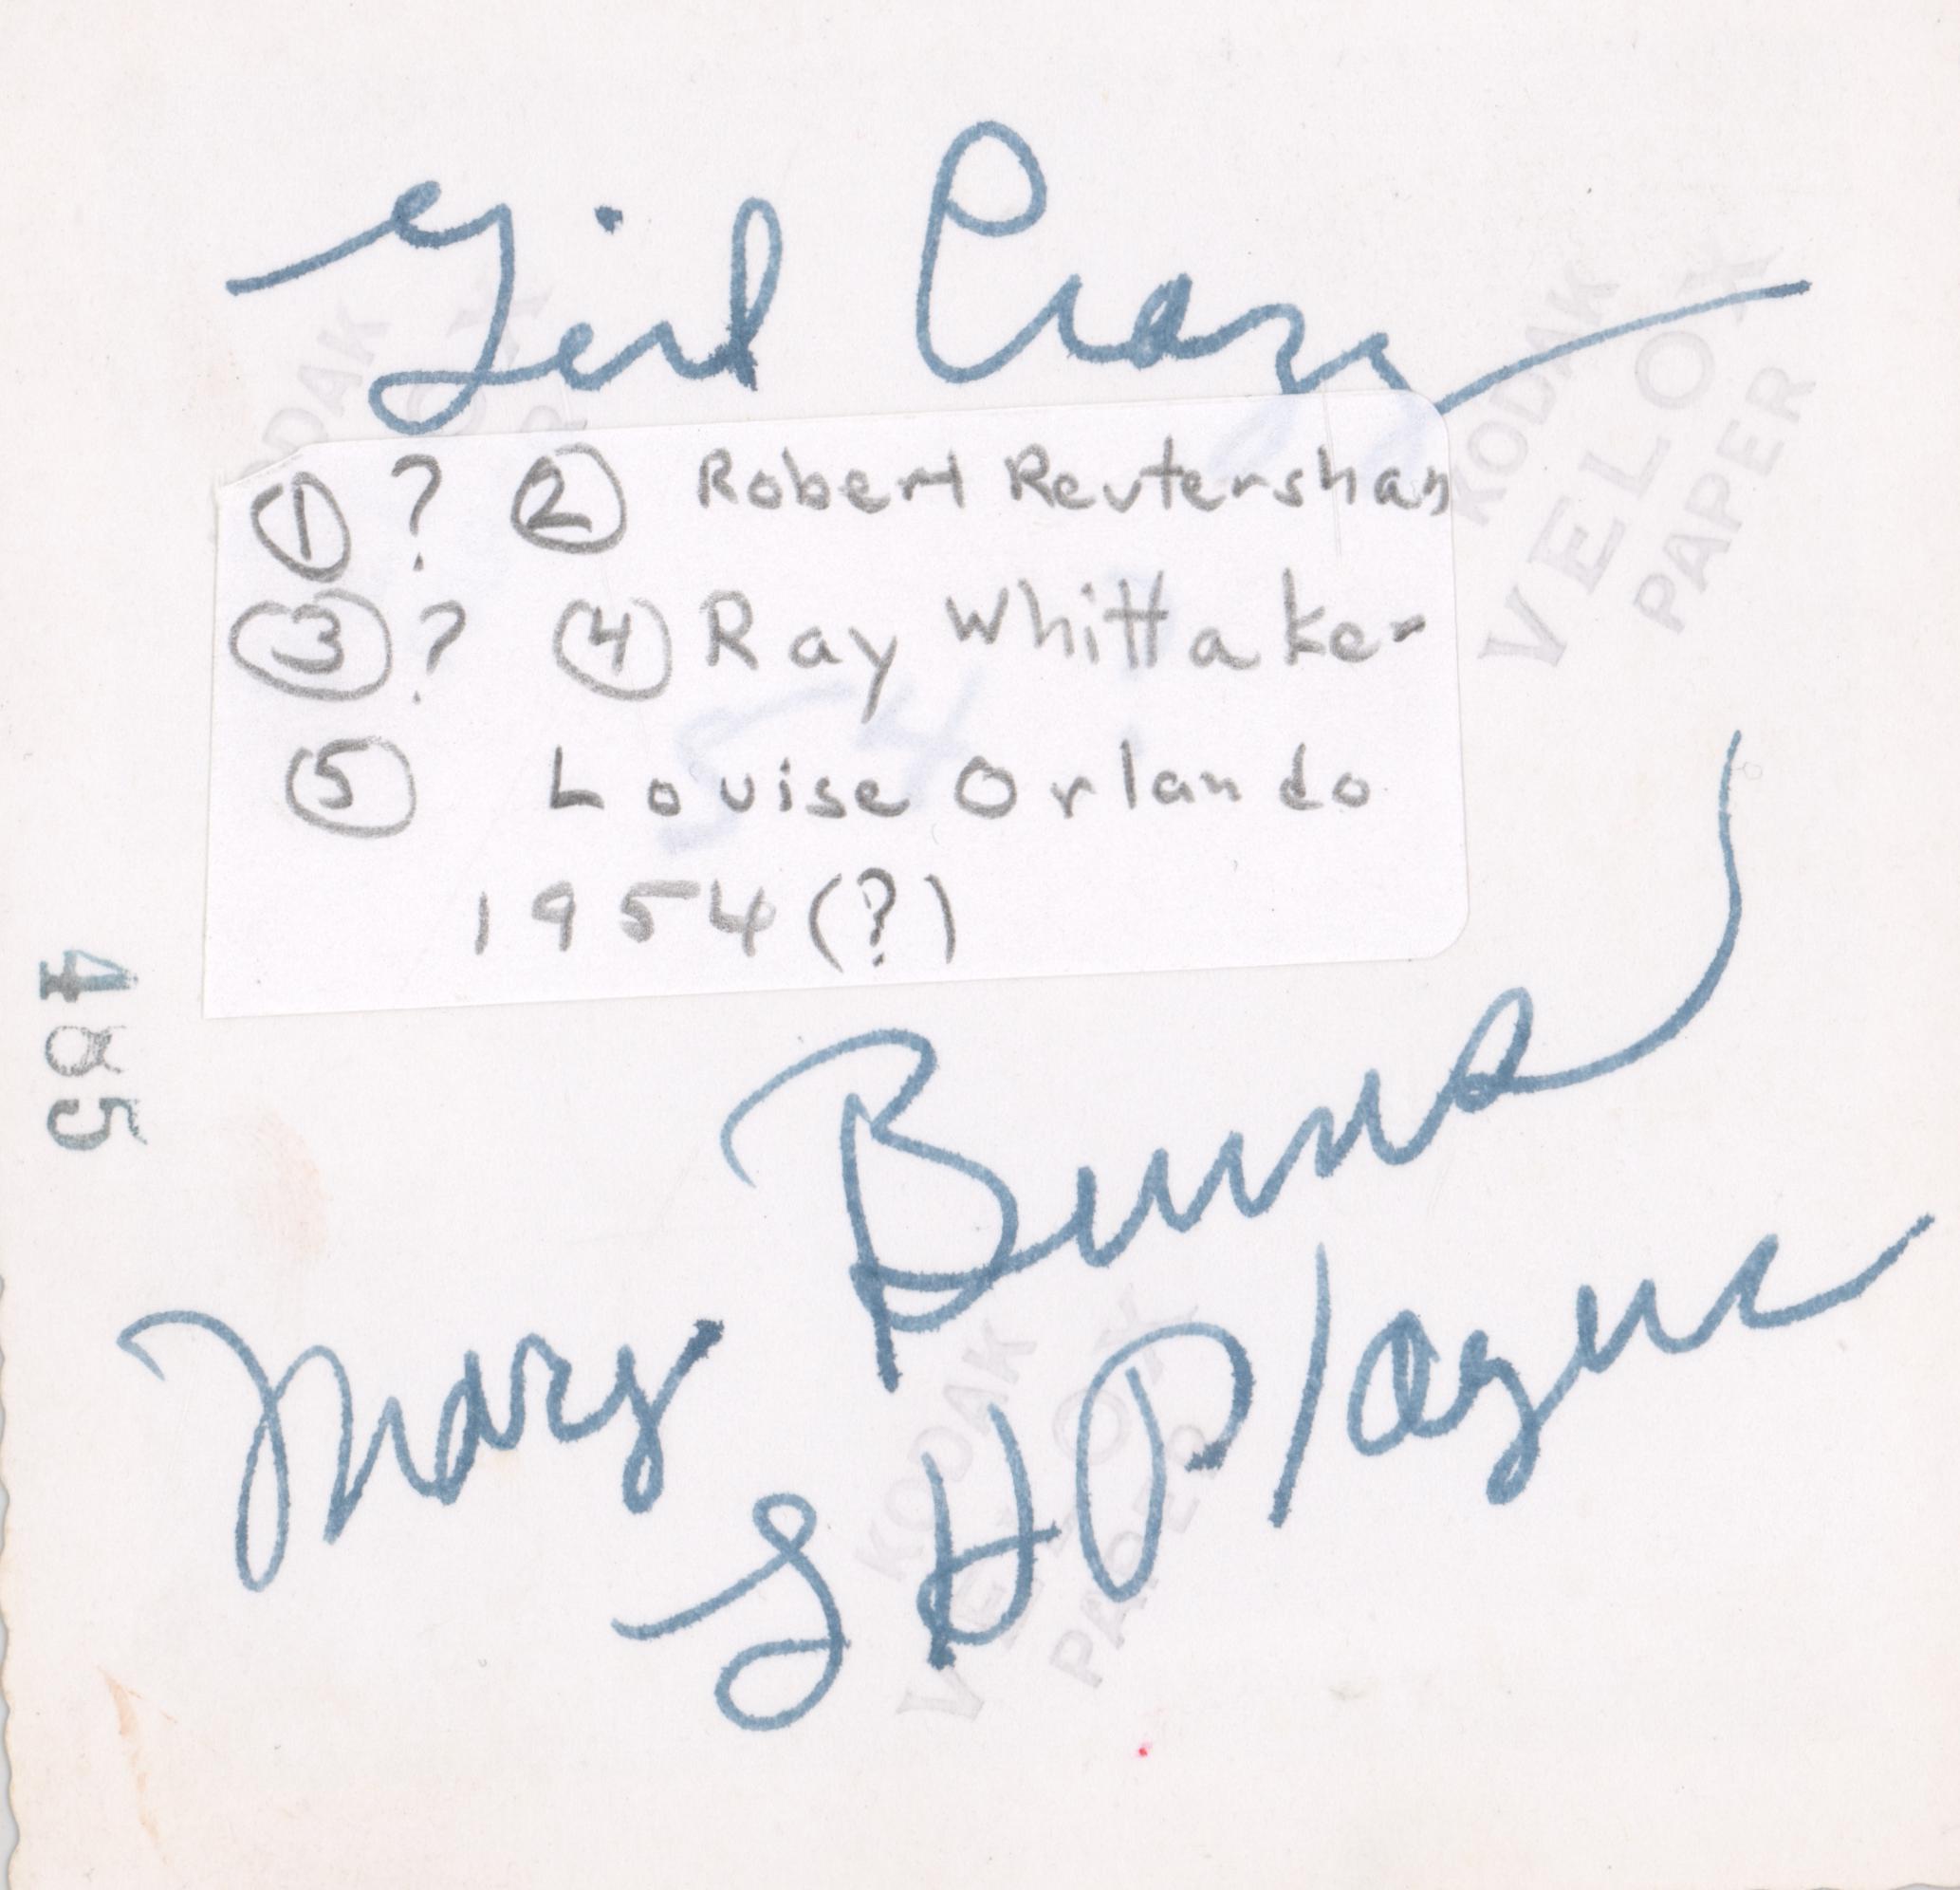 Girl Crazy
① ? ② Robert Reutershan
③ ? ④ Ray Whittaker
⑤ Louise Orlando
1954(?)
54
485
Mary Burns
SH Players
KODAK
VELOX
PAPER
KODAK
VELOX
PAPER
KODAK
VELOX
PAPER